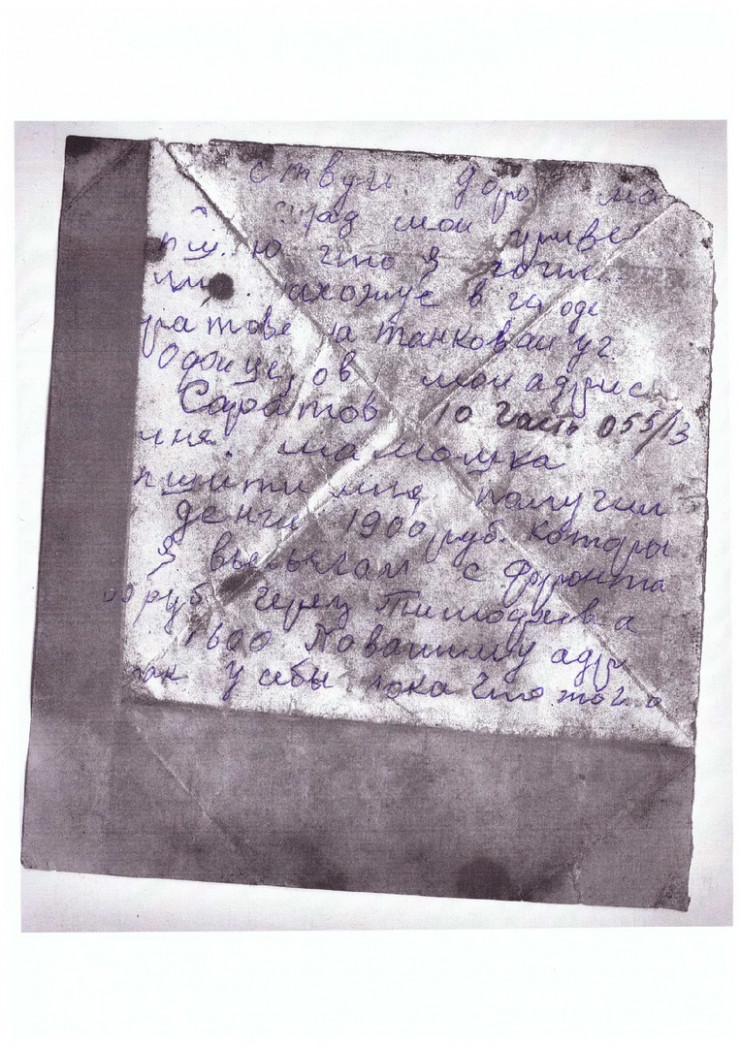 ствуи доро ма
рад мои приве
пш ю что я
нахожус в га оде
ратове на танковаи уч
Офицеров мои адрис
Саратов 10 часть 055/13
мня мамошка
пшити мня получил
денги 1900 руб. которы
я высылал с фронта
00 руб через Тимофеева
1600 Повашиму адри
так у себы пока что того